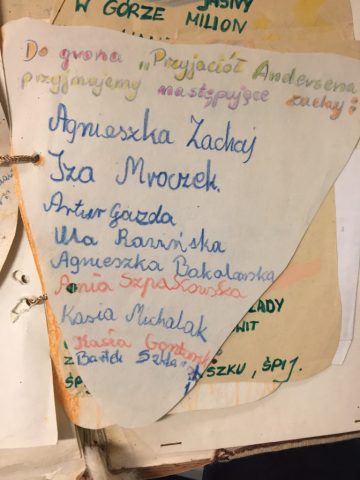 JASNY
W GÓRZE MILION
Do grona „Przyjaciół Andersena"
przyjmujemy następujące zuchy:
Agnieszka Zachaj
Iza Mroczek.
Artur Gazda
Ula Rasińska
Agnieszka Bakalarska
Ania Szpakowska
Kasia Michalak
Kasia
Bartek
ŁADY
WIT
SZKU, ŚPIJ.